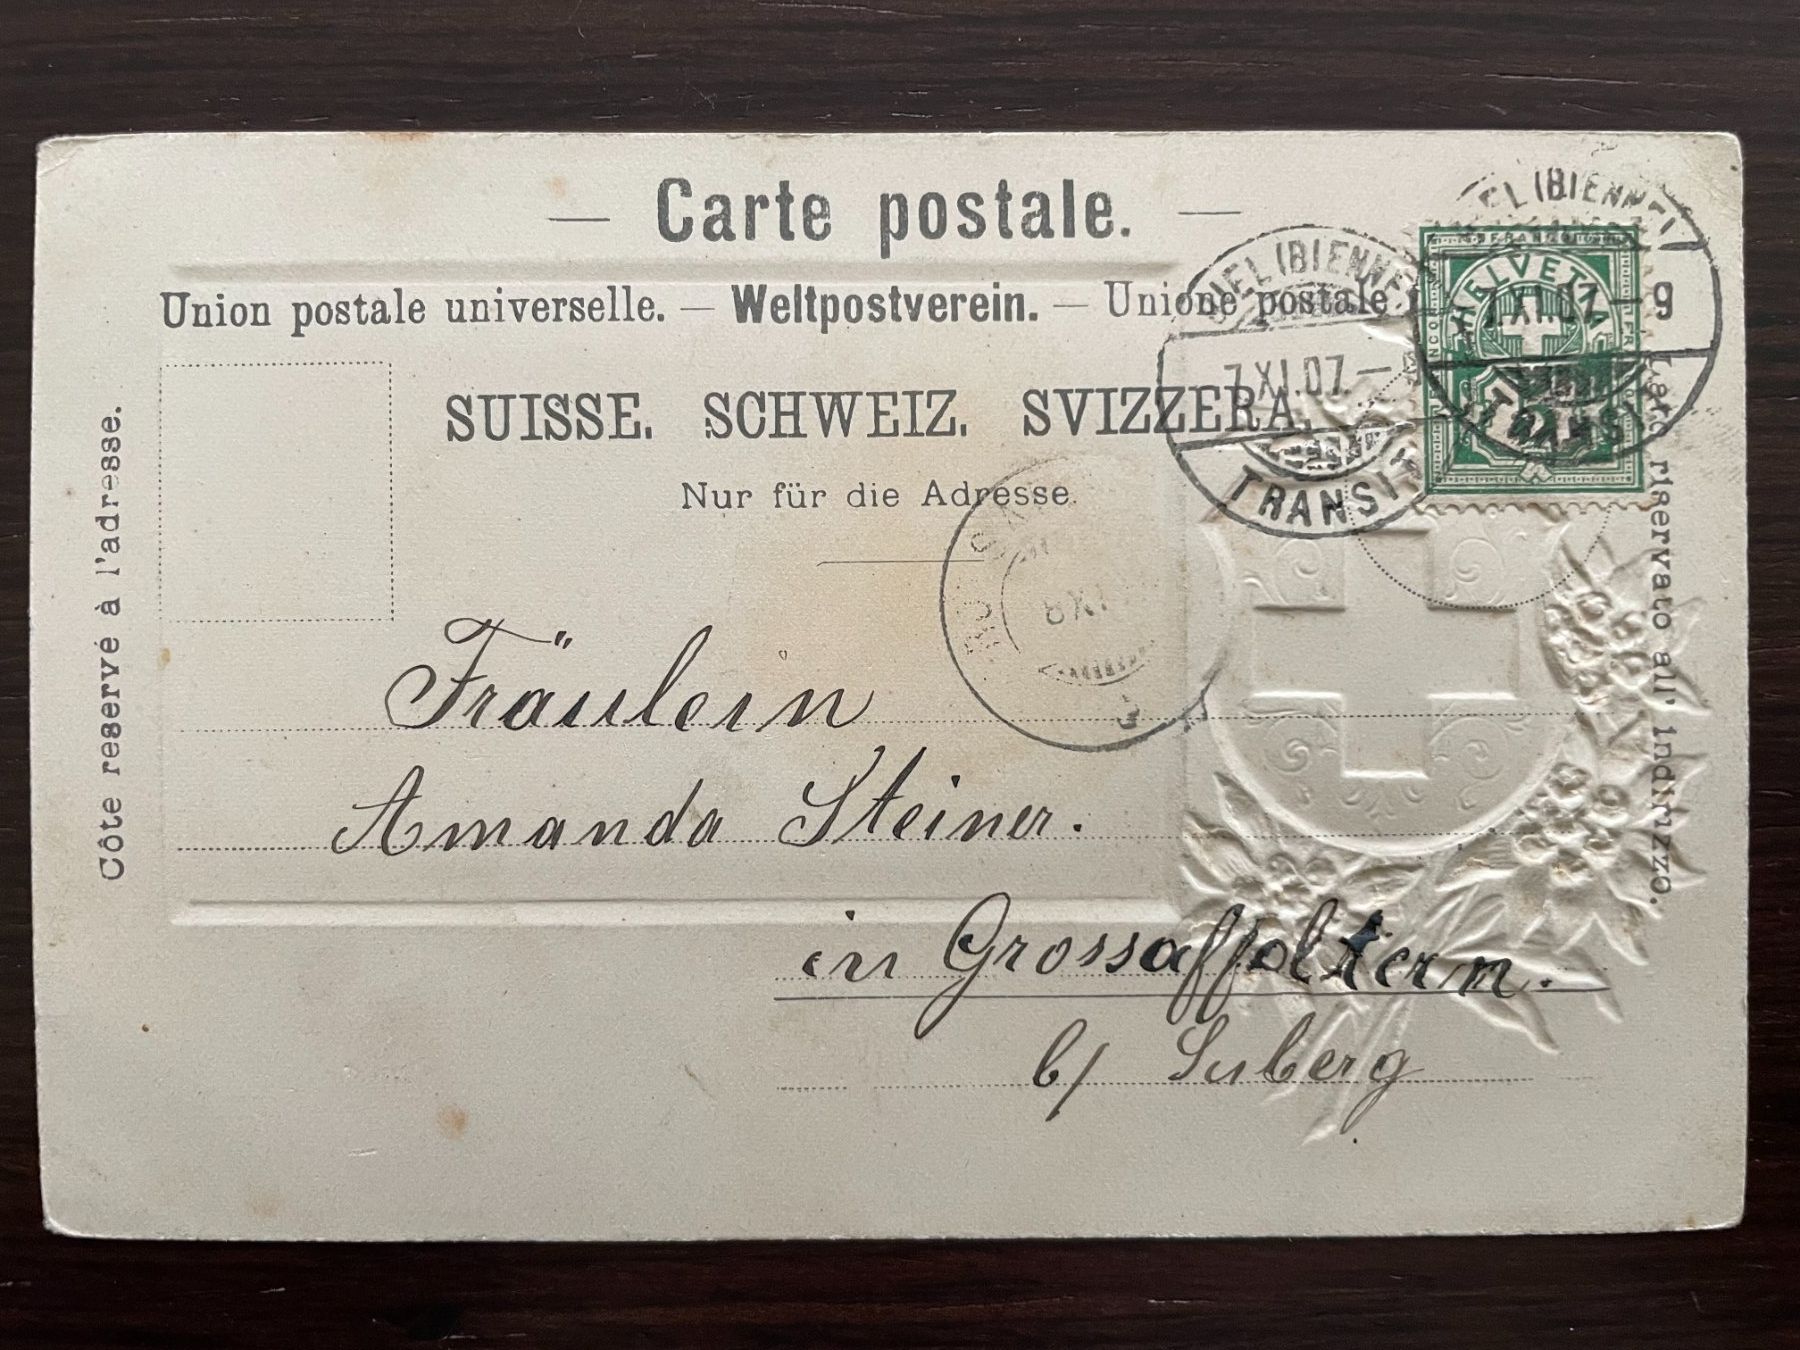 Carte postale.
Union postale universelle. — Weltpostverein. — Unione postale
SUISSE. SCHWEIZ. SVIZZERA.
Nur für die Adresse.
Côte reservé à l'adresse.
riservato all' indirizzo.
BIEL (BIENNE)
7.XI.07.–9
TRANSIT
BIEL (BIENNE)
7.XI.07.–
TRANSIT
FRANCO
HELVETIA
8.XI
Fräulein
Amanda Steiner.
in Grossaffoltern.
b/ Suberg